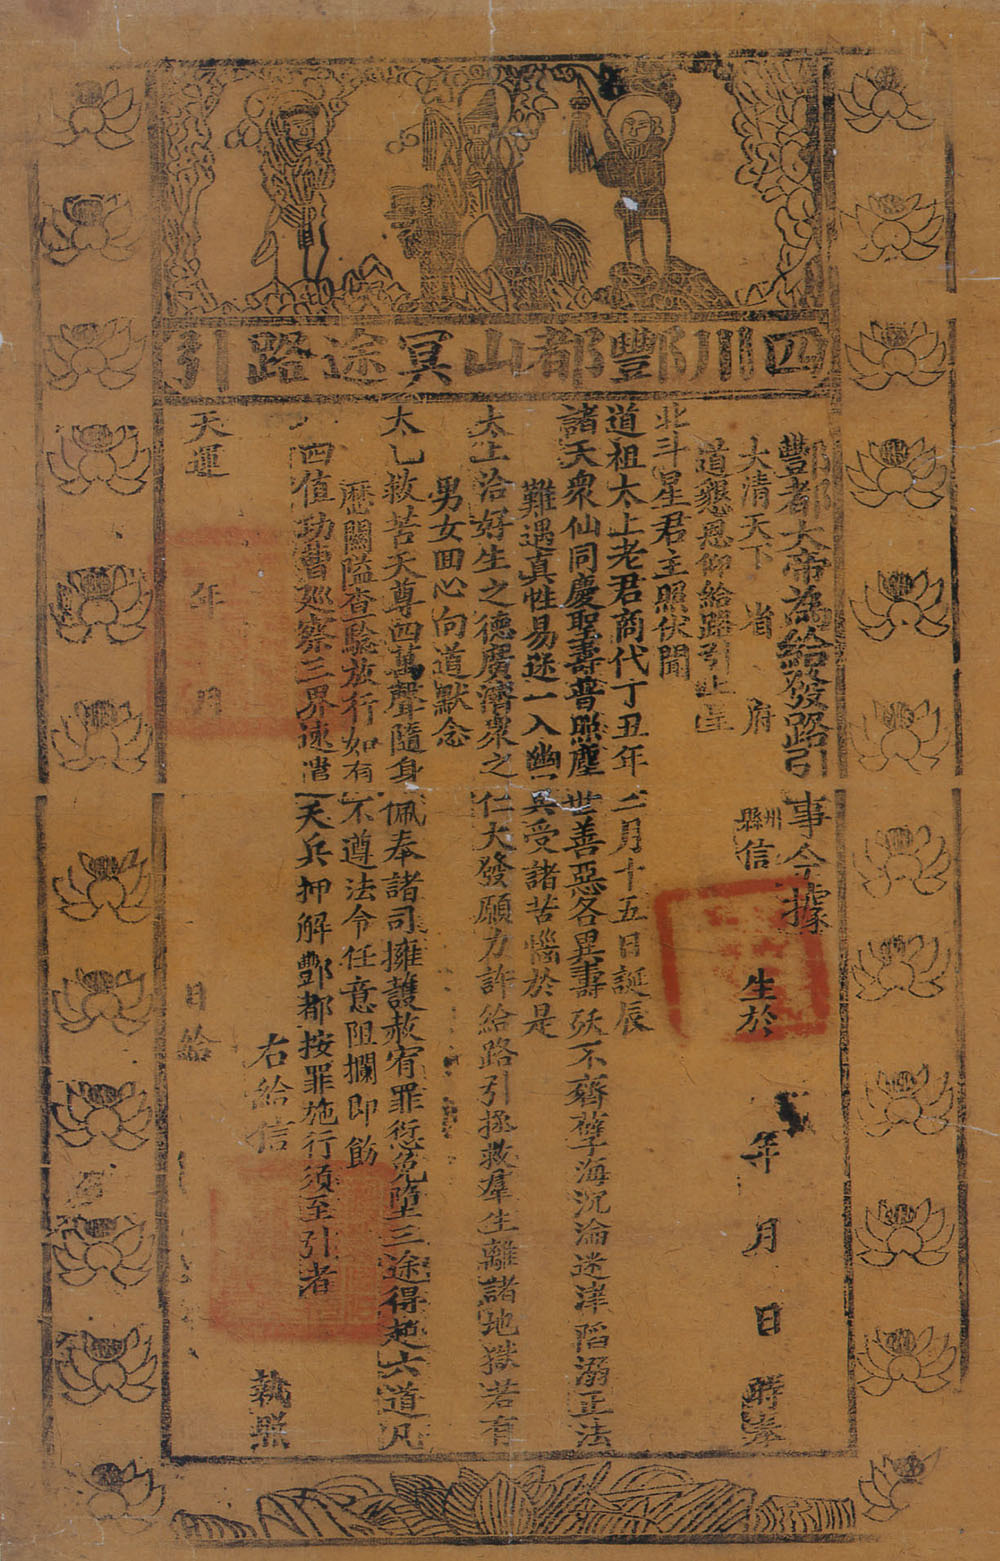 四川酆都山冥途路引
酆都大帝為給發路引事今據
大清天下 省 府 州縣信 生於 年 月 日 時奉
道懇恩仰給路引上呈
北斗星君主照伏聞
道祖太上老君商代丁丑年二月十五日誕辰
諸天衆仙同慶聖壽普照塵世善惡各異壽殀不齊孽海沉淪迷津陷溺正法
難遇真性易迷一入幽冥受諸苦惱於是
太上洽好生之德廣濟衆之仁大發願力許給路引拯救羣生離諸地獄若有
男女囬心向道默念
太乙救苦天尊四萬聲隨身佩奉諸司擁護赦宥罪愆免墮三途得超六道凡
歷關隘查驗放行如有不遵法令任意阻攔即飭
四值功曹廵察三界速遣天兵押解酆都按罪施行須至引者
右給信 執照
天運 年 月 日給